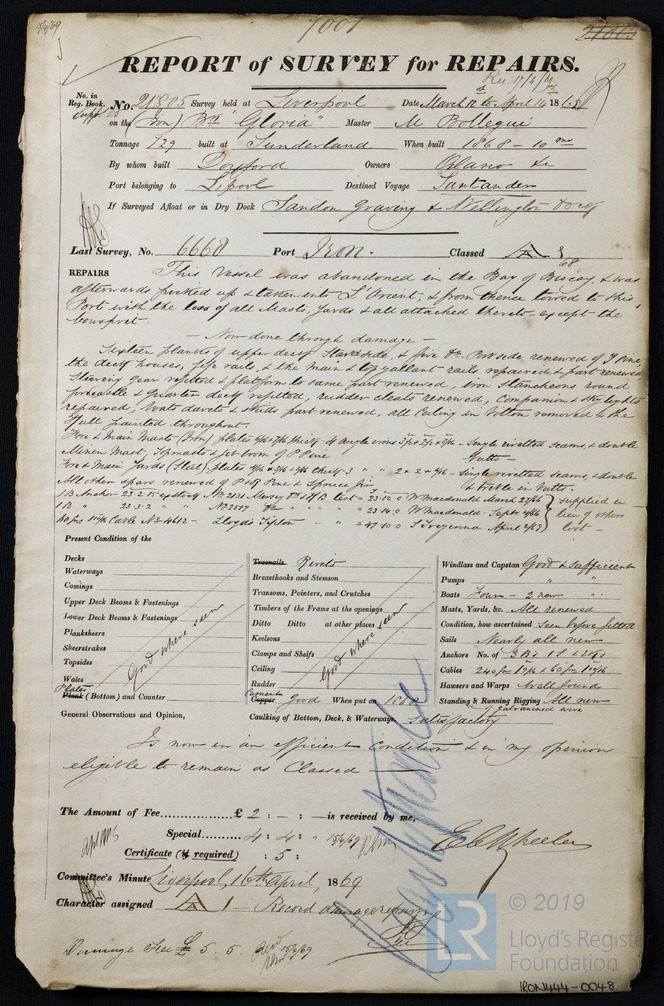 15/4/69
7001
REPORT of SURVEY for REPAIRS.
Rec. 17/4/69
No. in Reg. Book.
No. 21805 Survey held at Liverpool Date March 12 to April 14 1869
on the (Iron) Bk "Gloria" Master M Bollegui
Tonnage 729 built at Sunderland When built 1868 - 10 mo
By whom built Doxford Owners Olano &c
Port belonging to L'pool Destined Voyage Santander
If Surveyed Afloat or in Dry Dock Sandon Graving & Wellington Dock
Last Survey, No. 6668 Port Iron. Classed A
68
REPAIRS This Vessel was abandoned in the Bay of Biscay, & was
afterwards picked up & taken into L'Orient, & from thence towed to this
Port with the loss of all Masts, Yards & all attached thereto except the
bowsprit.
— Now done through damage —
Sixteen planks of upper deck Starbside, & five Do. Port side renewed of Y Pine,
the deck houses, fife rails, & the main & topgallant rails repaired & part renewed
Steering gear refitted & platform to same part renewed, iron Stancheons round
forecastle & quarter deck refitted, rudder cleats renewed, Companion & sky lights
repaired, boats davits & skids part renewed, all Ceiling in bottom removed & the
Hull painted throughout.
Fore & Main Mast (Iron) plates thick 4 angle irons Single rivetted Seams, & double
Butts
Mizen Mast, Topmasts & jib boom of P Pine
Fore & Main Yards (Steel) plates thick - 3 " " 2 x 2 x 4/16 - Single rivetted seams, & double
& treble in Butts.
All other spars renewed of P & R Pine & Spruce fir
1 B Anchor - 23.2.15 ex stock No 2131 Mersey = 23.12.0 W Macdonald March 27/66
1 B " 23.3.2 " " No 2377 Do = 23.14.0 W Macdonald Sept
60 fms 1 7/16 Cable No 4612 - Lloyds Tipton " = 47.10.0 April 2/69
supplied in lieu of others lost -
Present Condition of the
Decks
Waterways
Comings
Upper Deck Beams & Fastenings
Lower Deck Beams & Fastenings
Planksheers
Sheerstrakes
Topsides
Wales
Plates
Plank (Bottom) and Counter
Good where seen
General Observations and Opinion,
Treenails Rivets
Breasthooks and Stemson
Transoms, Pointers, and Crutches
Timbers of the Frame at the openings
Ditto Ditto at other places
Keelsons
Clamps and Shelfs
Ceiling
Rudder
Good where seen
Cement
Copper Good When put on 1868
Caulking of Bottom, Deck, & Waterways Satisfactory
Windlass and Capstan Good & Sufficient
Pumps " "
Boats Four - 2 new "
Masts, Yards, &c. All renewed
Condition, how ascertained Seen before fitted
Sails Nearly all new
Anchors No. of 3 Bs 1 S & 2 Ks
Cables 240 fms & 60 fms
Hawsers and Warps Well found
Standing & Running Rigging All new
of galvanised wire
Is now in an efficient condition & in my opinion
eligible to remain as Classed —
The Amount of Fee £ 2 : - : - is received by me,
Special 4 : 4 : " 15/4/69
Certificate (if required) : 5 :
E C Wheeler
Committee's Minute Liverpool, 16th April, 1869
Character assigned A1 — Record damage repairs
Damage Fee £ 5. 5. 15/4/69
LR © 2019
Lloyd's Register
Foundation
IRON444-0048